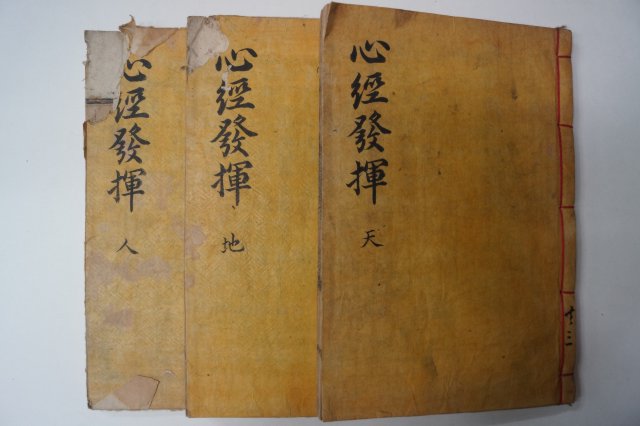 共三
心經發揮
天
心經發揮
地
心經發揮
人